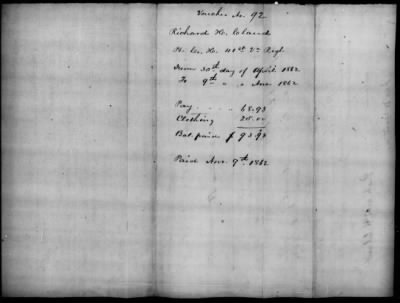 Voucher No. 92
Richard H. Cleland
Co. H. 41st Va Regt
From 30th day of April 1862
To 9th " " Nov 1862
Pay . . . . 68.93
Clothing 25.00
Bal. paid $ 93.93
Paid Nov. 9th 1862